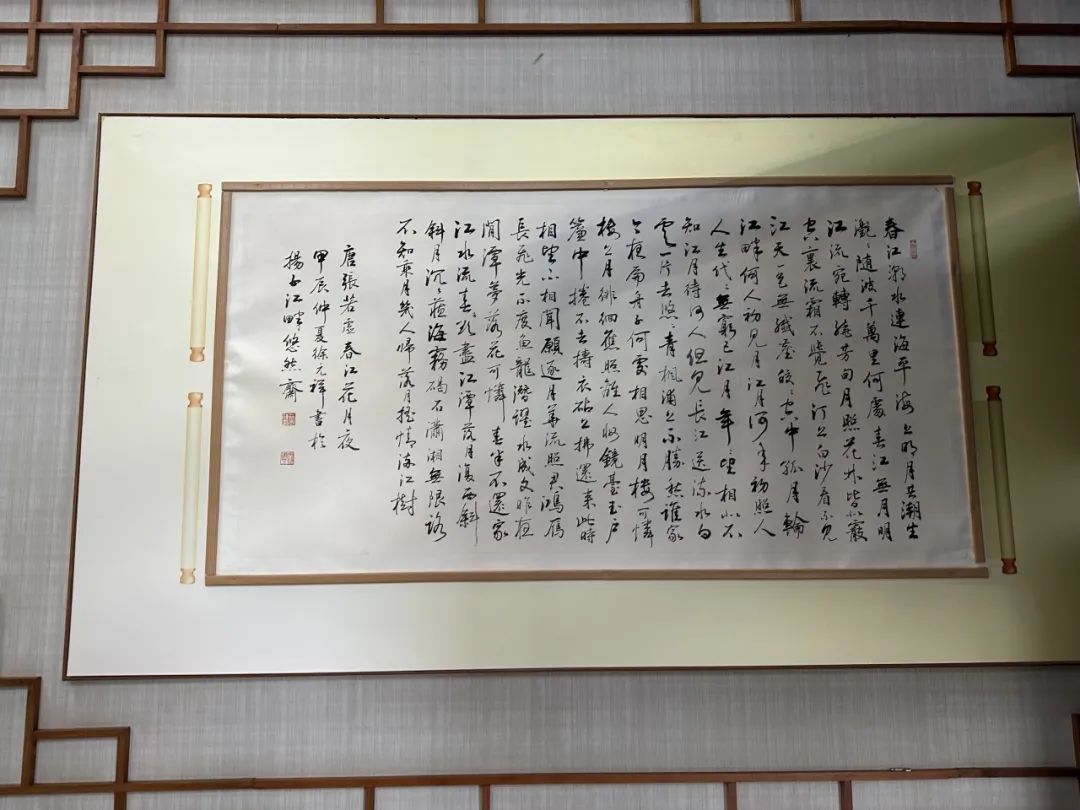 春江潮水連海平海上明月共潮生
灩〻隨波千萬里何處春江無月明
江流宛轉繞芳甸月照花林皆似霰
空裏流霜不覺飛汀上白沙看不見
江天一色無纖塵皎〻空中孤月輪
江畔何人初見月江月何年初照人
人生代〻無窮已江月年〻望相似不
知江月待何人但見長江送流水白
雲一片去悠〻青楓浦上不勝愁誰家
今夜扁舟子何處相思明月樓可憐
樓上月徘徊應照離人妝鏡臺玉戶
簾中捲不去擣衣砧上拂還來此時
相望不相聞願逐月華流照君鴻雁
長飛光不度魚龍潛躍水成文昨夜
閒潭夢落花可憐春半不還家
江水流春去欲盡江潭落月復西斜
斜月沉〻藏海霧碣石瀟湘無限路
不知乘月幾人歸落月搖情滿江樹
唐張若虛春江花月夜
甲辰仲夏徐元祥書於
揚子江畔悠然齋